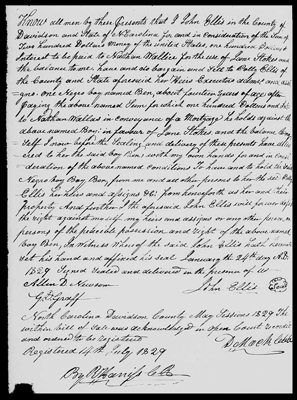 Know all men by these Presents that I John Ellis in the County of
Davidson and State of N Carolina for and in Consideration of the Sum of
Two hundred Dollars money of the United States, one hundred Dollars &
Interest to be paid to Nathan Wallis for the use of Lane Stokes and
the balance to me have and do bargain and Sell to Polly Ellis of
the County and State aforesaid her Heirs Executors admrs and assi
gns. One Negro boy named Ben, about fourteen years of age after
Paying the above named Sum for which one hundred Dollars and
to Nathan Wallis in Conveyance of a Mortgage he holds against the
above named Ben in favour of Lane Stokes and the balance
Self I now before the Sealing and delivery of these presents have
ered to her the said Boy Ben, with my own hands for and in Consi
deration of the above named Conditions To have and to hold the said
Negro Boy Ben, from me and all other persons to her the said Polly
Ellis her heirs and assigns &c. from henceforth as her and their
property And further I the aforesaid John Ellis will forever
the right against myself my heirs and assigns or any other person or
persons of the peaceable possession and right of the above named
boy Ben, In witness Whereof the said John Ellis hath hereunto
set his hand and affixed his seal January the 24th day A.D.
1829 Signed Sealed and delivered in the presence of us
Allen D. Newsom
John Ellis
G. D. Graff
North Carolina Davidson County May Sessions 1829 The
within bill of Sale was acknowledged in open Court
and ordered to be registered
Registered 14th July 1829
D. Mock
By